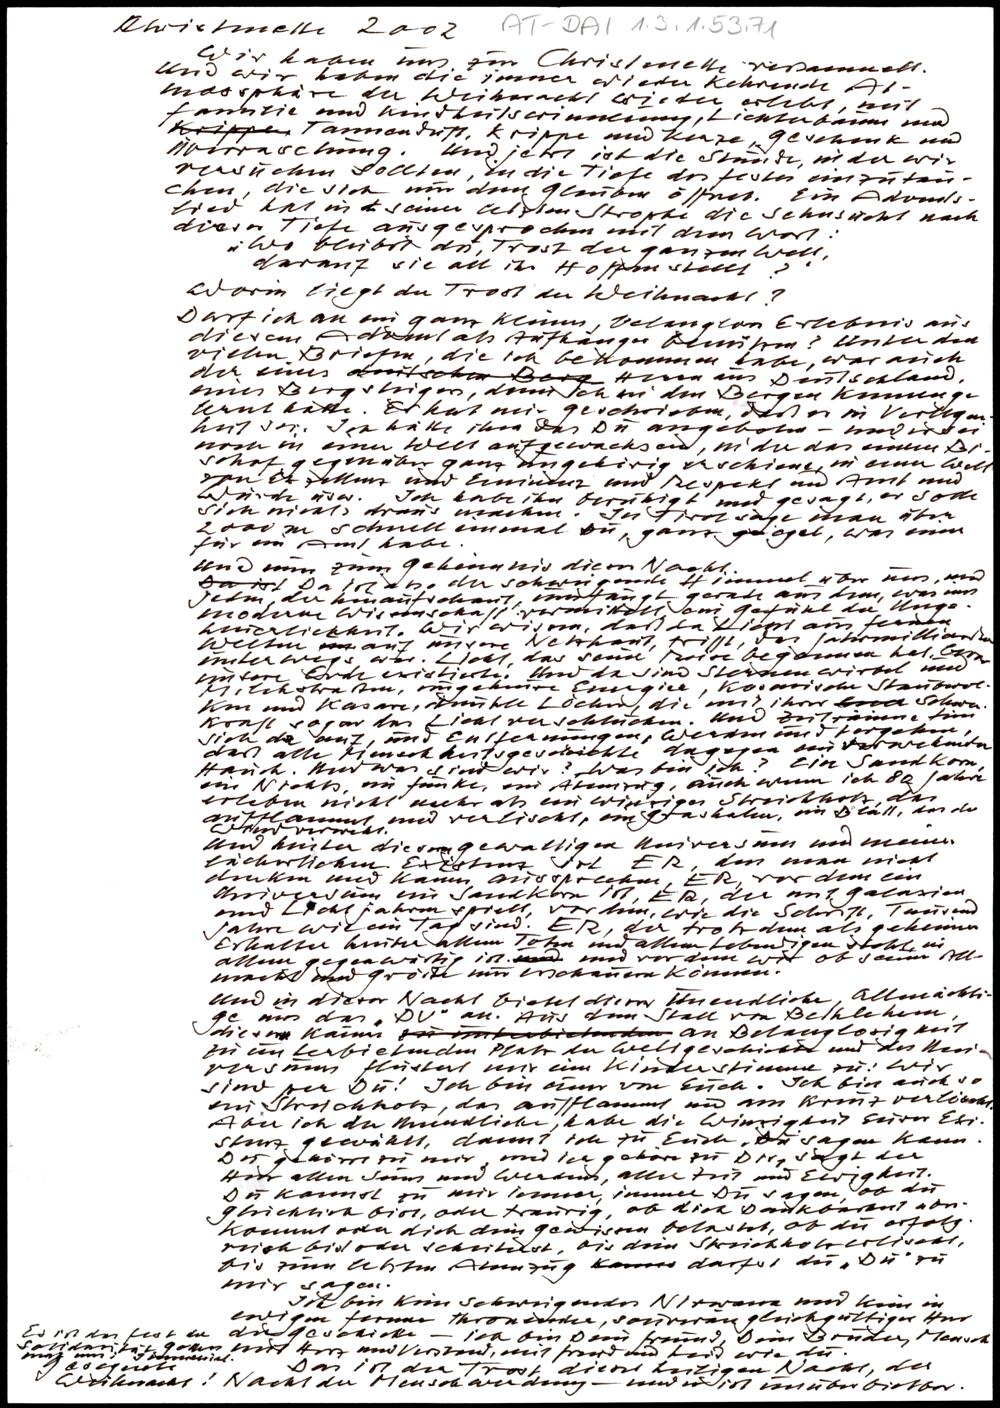 Christmette 2002 AT-DAI 1.3.1.53.71
Wir haben uns zur Christmette versammelt.
Und wir haben die immer wieder kehrende At-
mosphäre der Weihnacht wieder erlebt, mit
Familie und Kindheitserinnerung, Lichterbaum und
Krippe Tannenduft, Krippe und Kerze, Geschenk und
Überraschung. Und jetzt ist die Stunde, in der wir
versuchen sollten, in die Tiefe des Festes einzutau-
chen, die sich nur dem Glauben öffnet. Ein Advents-
lied hat in seiner letzten Strophe die Sehnsucht nach
dieser Tiefe ausgesprochen mit dem Wort:
"Wo bleibst du, Trost der ganzen Welt,
darauf sie all ihr Hoffen stellt?"
Worin liegt der Trost der Weihnacht?
Darf ich an ein ganz kleines, belangloses Erlebnis aus
diesem Advent als Aufhänger benützen? Unter den
vielen Briefen, die ich bekommen habe, war auch
der eines deutschen Berg Herrn aus Deutschland,
eines Bergsteigers, den ich in den Bergen kennenge-
lernt hatte. Er hat mir geschrieben, daß er in Verlegen-
heit sei. Ich hätte ihm das Du angeboten – und er sei
noch in einer Welt aufgewachsen, in der das einem Bi-
schof gegenüber ganz ungehörig erschiene, in einer Welt
von Exzellenz und Eminenz und Respekt und Amt und
Würde usw. Ich habe ihn beruhigt und gesagt, er solle
sich nichts draus machen. In Tirol sage man über
2000 m schnell einmal Du, ganz gleich, was einer
für ein Amt habe.
Und nun zum Geheimnis dieser Nacht.
Da ist Da ist also der schweigende Himmel über uns, und
jeden, der hinaufschaut, umfängt gerade aus dem, was uns
moderne Wissenschaft vermittelt, ein Gefühl der Unge-
heuerlichkeit. Wir wissen, daß da Licht aus fernen
Welten auf unsere Netzhaut trifft, das Jahrmilliarden
unterwegs war. Licht, das seine Reise begonnen hat, bevor
unsere Erde existierte. Und da sind Sternenwirbel und
Milchstraßen, ungeheure Energien, kosmische Staubwol-
ken und Quasare, dunkle Löcher, die mit ihrer Schwer-
kraft sogar das Licht verschlucken. Und Zeiträume tun
sich da auf, und Entfernungen, Werden und Vergehen,
daß alle Menschheitsgeschichte dagegen ein verwehender
Hauch. Und was sind wir? Was bin ich? Ein Sandkorn,
ein Nichts, ein Funke, ein Atemzug, auch wenn ich 80 Jahre
erleben nicht mehr als ein winziges Streichholz, das
aufflammt und verlischt, ein Grashalm, ein Blatt, das der
Wind verweht.
Und hinter diesem gewaltigen Universum und meiner
lächerlichen Existenz ist ER, den man nicht
denken und kaum aussprechen, ER, vor dem ein
Universum ein Sandkorn ist, ER, der mit Galaxien
und Lichtjahren spielt, vor dem, wie die Schrift, Tausend
Jahre wie ein Tag sind, ER, der trotzdem als geheimer
Erhalter hinter allem Toten und allem Lebendigen steht, in
allem gegenwärtig ist und vor dem wir ob seiner All-
macht und Größe nur erschauern können.
Und in dieser Nacht bietet dieser Unendliche, Allmächti-
ge uns das "DU" an. Aus dem Stall von Bethlehem,
diesem kaum zu unterbietenden an Belanglosigkeit
zu unterbietenden Platz der Weltgeschichte und des Uni-
versums flüstert mir eine Kinderstimme zu: Wir
sind per Du! Ich bin einer von Euch. Ich bin auch so
ein Streichholz, das aufflammt und am Kreuz verlöscht.
Aber ich der Unendliche, habe die Winzigkeit Eurer Exi-
stenz gewählt, damit ich zu Euch Du sagen kann.
Du gehörst zu mir, und ich gehöre zu Dir, sagt der
Herr allen Seins und Werdens, aller Zeit und Ewigkeit.
Du kannst zu mir immer, immer Du sagen, ob du
glücklich bist, oder traurig, ob dich Dankbarkeit über-
kommt oder dich dein Gewissen belastet, ob du erfolg-
reich bist oder scheiterst, bis dein Streichholz erlischt,
bis zum letzten Atemzug kannst darfst du "Du" zu
mir sagen.
Ich bin kein schweigendes Nirwana und kein in
ewigen Fernen thronender, souverän gleichgültiger Herr
der Geschicke – ich bin Dein Freund, Dein Bruder, Mensch
mit Herz und Verstand, mit Freud und Leid wie du.
Das ist der Trost dieser heiligen Nacht, der
Nacht der Menschwerdung – und er ist unüberbietbar.
Es ist das Fest der
Solidarität Gottes
mit uns.
Gesegnete
Weihnacht!